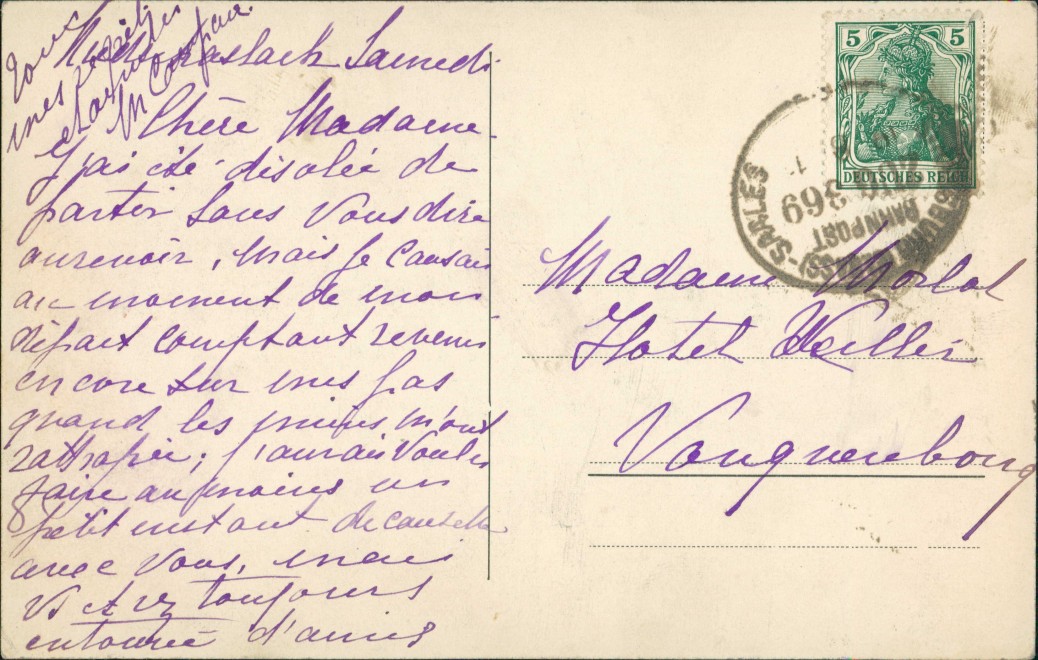 Samedi
Chère Madame
J'ai été désolée de
partir sans vous dire
aurevoir, mais je causais
au moment de mon
départ comptant revenir
encore sur mes pas
quand les miens m'ont
rattrapée; j'aurais voulu
faire au moins un
petit instant de causette
avec vous, mais
vs étiez toujours
entourée d'amis
Tout
mes
et
M
5 5
DEUTSCHES REICH
SARLES
BAHNPOST
369
Madame Morlot
Hotel Weller
Vanquenbourg